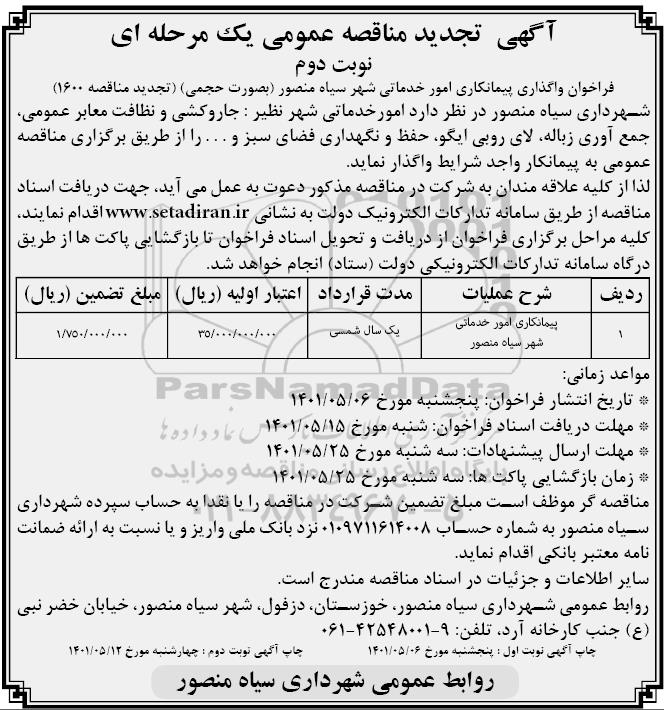 آگهی تجدید مناقصه عمومی یک مرحله ای
نوبت دوم
فراخوان واگذاری پیمانکاری امور خدماتی شهر سیاه منصور (بصورت حجمی) (تجدید مناقصه ۱۶۰۰)
شهرداری سیاه منصور در نظر دارد امورخدماتی شهر نظیر : جاروکشی و نظافت معابر عمومی،
جمع آوری زباله، لای روبی ایگو، حفظ و نگهداری فضای سبز و ... را از طریق برگزاری مناقصه
عمومی به پیمانکار واجد شرایط واگذار نماید.
لذا از کلیه علاقه مندان به شرکت در مناقصه مذکور دعوت به عمل می آید، جهت دریافت اسناد
مناقصه از طریق سامانه تدارکات الکترونیک دولت به نشانی www.setadiran.ir اقدام نمایند،
کلیه مراحل برگزاری فراخوان از دریافت و تحویل اسناد فراخوان تا بازگشایی پاکت ها از طریق
درگاه سامانه تدارکات الکترونیکی دولت (ستاد) انجام خواهد شد.
ردیف شرح عملیات مدت قرارداد اعتبار اولیه (ریال) مبلغ تضمین (ریال)
۱ پیمانکاری امور خدماتی شهر سیاه منصور یک سال شمسی ۳۵/۰۰۰/۰۰۰/۰۰۰ ۱/۷۵۰/۰۰۰/۰۰۰
مواعد زمانی:
* تاریخ انتشار فراخوان: پنجشنبه مورخ ۱۴۰۱/۰۵/۰۶
* مهلت دریافت اسناد فراخوان: شنبه مورخ ۱۴۰۱/۰۵/۱۵
* مهلت ارسال پیشنهادات: سه شنبه مورخ ۱۴۰۱/۰۵/۲۵
* زمان بازگشایی پاکت ها: سه شنبه مورخ ۱۴۰۱/۰۵/۲۵
مناقصه گر موظف است مبلغ تضمین شرکت در مناقصه را یا نقدا به حساب سپرده شهرداری
سیاه منصور به شماره حساب ۰۱۰۹۷۱۱۶۱۴۰۰۸ نزد بانک ملی واریز و یا نسبت به ارائه ضمانت
نامه معتبر بانکی اقدام نماید.
سایر اطلاعات و جزئیات در اسناد مناقصه مندرج است.
روابط عمومی شهرداری سیاه منصور، خوزستان، دزفول، شهر سیاه منصور، خیابان خضر نبی
(ع) جنب کارخانه آرد، تلفن: ۹-۴۲۵۴۸۰۰۱-۰۶۱
چاپ آگهی نوبت اول : پنجشنبه مورخ ۱۴۰۱/۰۵/۰۶ چاپ آگهی نوبت دوم : چهارشنبه مورخ ۱۴۰۱/۰۵/۱۲
روابط عمومی شهرداری سیاه منصور
ParsNamadData